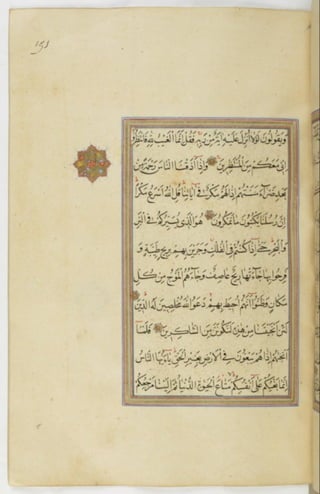 وَيَقُولُونَ لَوْلَا أُنْزِلَ عَلَيْهِ آيَةٌ مِنْ رَبِّهِ فَقُلْ إِنَّمَا الْغَيْبُ لِلَّهِ فَانْتَظِرُوا
إِنِّي مَعَكُمْ مِنَ الْمُنْتَظِرِينَ وَإِذَا أَذَقْنَا النَّاسَ رَحْمَةً مِنْ
بَعْدِ ضَرَّاءَ مَسَّتْهُمْ إِذَا لَهُمْ مَكْرٌ فِي آيَاتِنَا قُلِ اللَّهُ أَسْرَعُ مَكْرًا
إِنَّ رُسُلَنَا يَكْتُبُونَ مَا تَمْكُرُونَ هُوَ الَّذِي يُسَيِّرُكُمْ فِي الْبَرِّ
وَالْبَحْرِ حَتَّى إِذَا كُنْتُمْ فِي الْفُلْكِ وَجَرَيْنَ بِهِمْ بِرِيحٍ طَيِّبَةٍ وَ
فَرِحُوا بِهَا جَاءَتْهَا رِيحٌ عَاصِفٌ وَجَاءَهُمُ الْمَوْجُ مِنْ كُلِّ
مَكَانٍ وَظَنُّوا أَنَّهُمْ أُحِيطَ بِهِمْ دَعَوُا اللَّهَ مُخْلِصِينَ لَهُ الدِّينَ
لَئِنْ أَنْجَيْتَنَا مِنْ هَذِهِ لَنَكُونَنَّ مِنَ الشَّاكِرِينَ فَلَمَّا
أَنْجَاهُمْ إِذَا هُمْ يَبْغُونَ فِي الْأَرْضِ بِغَيْرِ الْحَقِّ يَا أَيُّهَا النَّاسُ
إِنَّمَا بَغْيُكُمْ عَلَى أَنْفُسِكُمْ مَتَاعَ الْحَيَوةِ الدُّنْيَا ثُمَّ إِلَيْنَا مَرْجِعُكُمْ